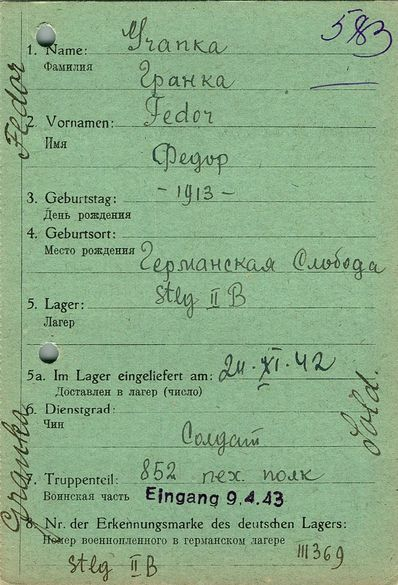 583
1. Name: Granka
Фамилия
Гранка
2. Vornamen: Fedor
Имя
Федор
3. Geburtstag: - 1913 -
День рождения
4. Geburtsort:
Место рождения Германская Слобода
5. Lager: Stlg II B
Лагер
5a. Im Lager eingeliefert am: 24.XI.42
Доставлен в лагер (число)
6. Dienstgrad:
Чин
Солдат
7. Truppenteil: 852 пех. полк
Воинская часть Eingang 9.4.43
8. Nr. der Erkennungsmarke des deutschen Lagers:
Номер военнопленного в германском лагере
III369
Stlg II B
Fedor
Granka
Sold.